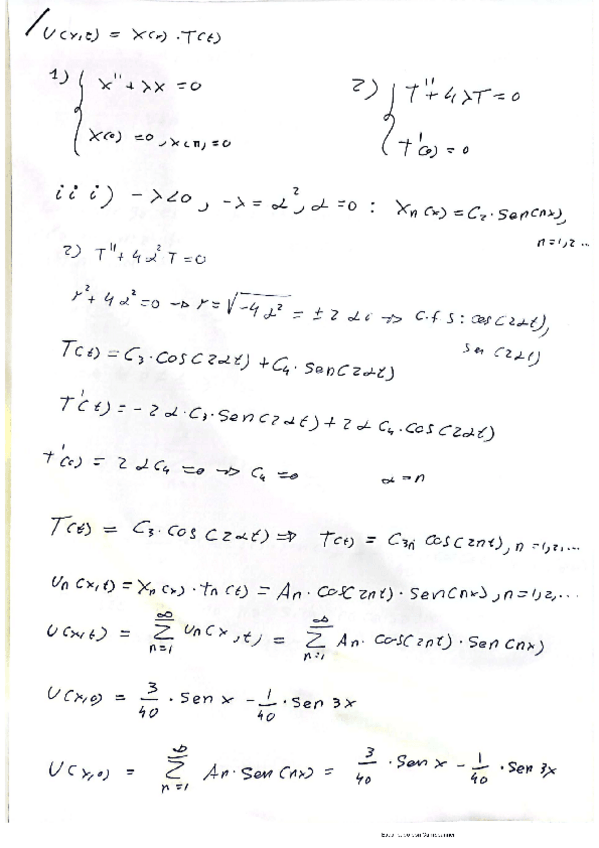 U(x,t) = X(x) · T(t)
1) { X'' + λX = 0
X(0) = 0, X(π) = 0
2) { T'' + 4λT = 0
T'(0) = 0
iii) -λ<0, -λ = α², α = 0 : Xn(x) = C₂ · sen(nx),
n = 1, 2 ...
2) T'' + 4α²T = 0
r² + 4α² = 0 → r = √-4α² = ± 2αi ⇒ C.f.S : cos(2αt),
sen(2αt)
T(t) = C₃ · cos(2αt) + C₄ · sen(2αt)
T'(t) = -2α · C₃ · sen(2αt) + 2αC₄ · cos(2αt)
T'(0) = 2αC₄ = 0 ⇒ C₄ = 0 α = n
T(t) = C₃ · cos(2αt) ⇒ T(t) = C₃n cos(2nt), n = 1, 2, ...
Un(x,t) = Xn(x) · tn(t) = An · cos(2nt) · sen(nx), n = 1, 2, ...
U(x,t) = ∑_{n=1}^{∞} Un(x,t) = ∑_{n=1}^{∞} An · cos(2nt) · sen(nx)
U(x,0) = 3/40 · sen x - 1/40 · sen 3x
U(x,0) = ∑_{n=1}^{∞} An · sen(nx) = 3/40 · sen x - 1/40 · sen 3x